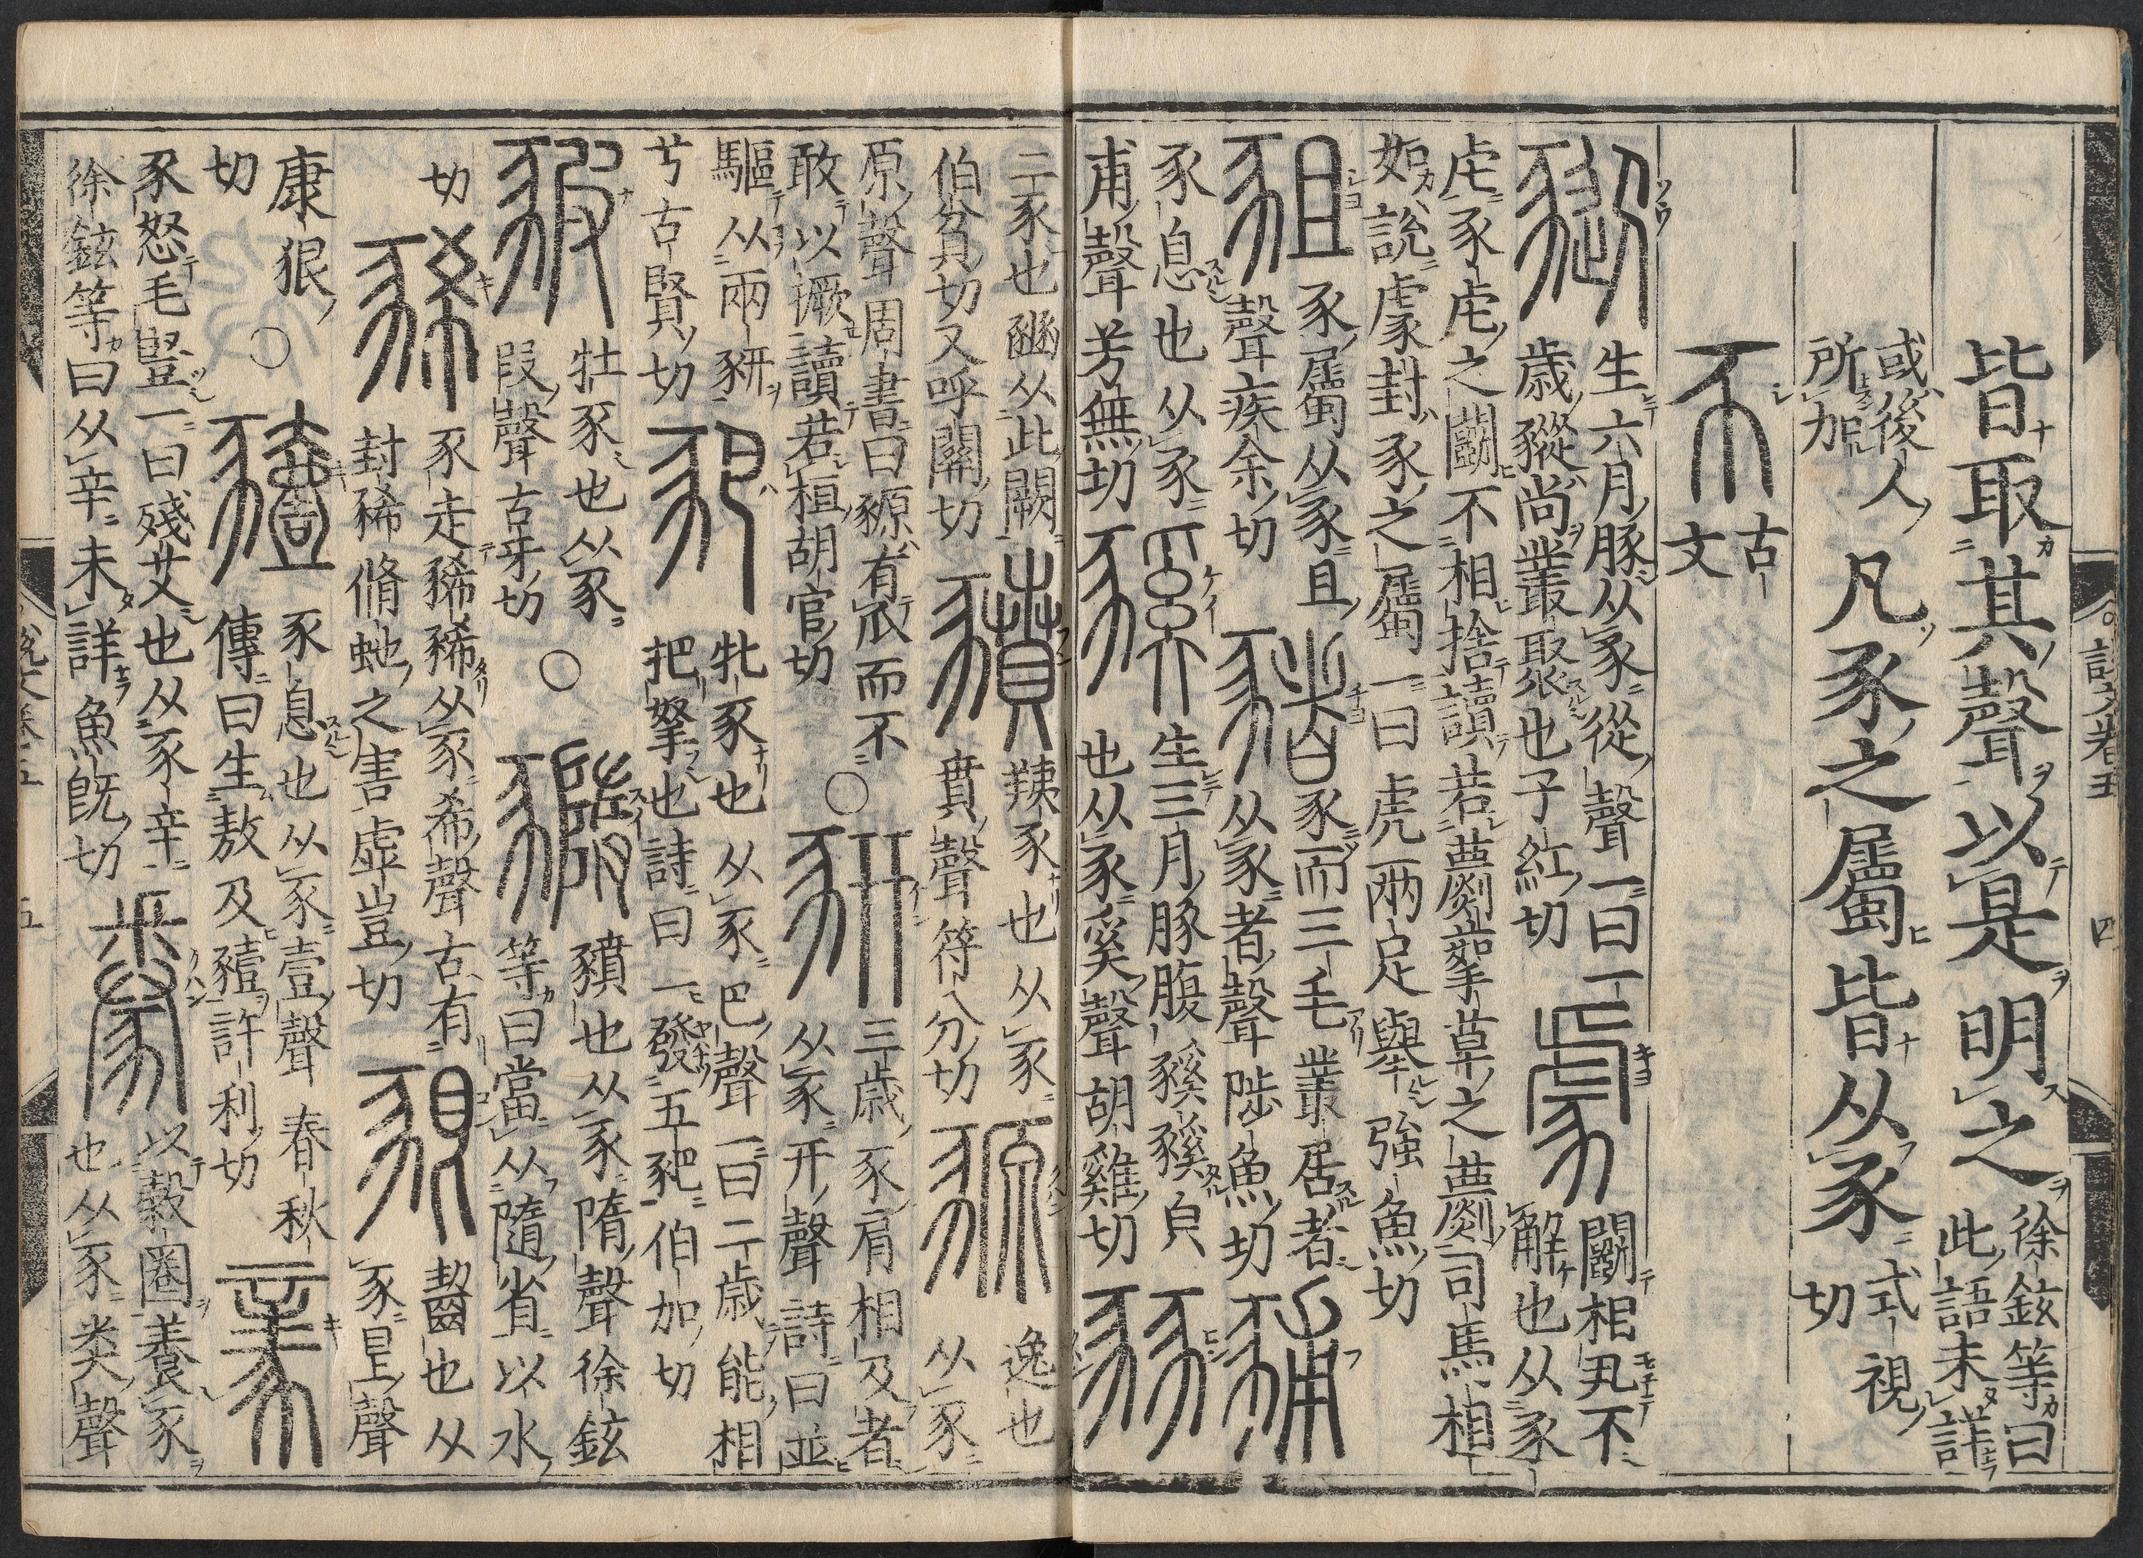 說文卷五 四
皆取其聲以是明之徐鉉等曰
此語未詳
或後人
所加
凡豕之屬皆从豕式視
切
𢁓古
文
豵生六月豚从豕從聲一曰一
歲豵尚叢聚也子紅切
豦鬬相丮不
解也从豕
虍豕虍之鬬不相捨讀若蘮蒘草之蘮司馬相
如說豦封豕之屬一曰虎兩足舉強魚切
豠豕屬从豕且
聲疾余切
豬豕而三毛叢居者
从豕者聲陟魚切
豧
豕息也从豕
甫聲芳無切
豯生三月豚腹豯豯皃
也从豕奚聲胡雞切
豩
二豕也豳从此闕
伯貧切又呼關切
豶羠豕也从豕
賁聲符分切
豲逸也
从豕
原聲周書曰豲有爪而不
敢以撅讀若桓胡官切
○
豣三歲豕肩相及者
从豕幵聲詩曰並
驅从兩豣
兮古賢切
豝牝豕也从豕巴聲一曰二歲能相
把拏也詩曰一發五豝伯加切
豭牡豕也从豕
叚聲古牙切
○
豶也从豕隋聲徐鉉
等曰當从隨省以水
切
豨豕走豨豨从豕希聲古有
封豨脩蛇之害虛豈切
豤齧也从
豕皀聲
康狠
切
○
豷豕息也从豕壹聲春秋
傳曰生敖及豷許利切
豙
豕怒毛豎一曰殘艾也从豕辛
徐鉉等曰从辛未詳魚旣切
豢以穀圈養豕
也从豕𢍏聲
說文卷五 五